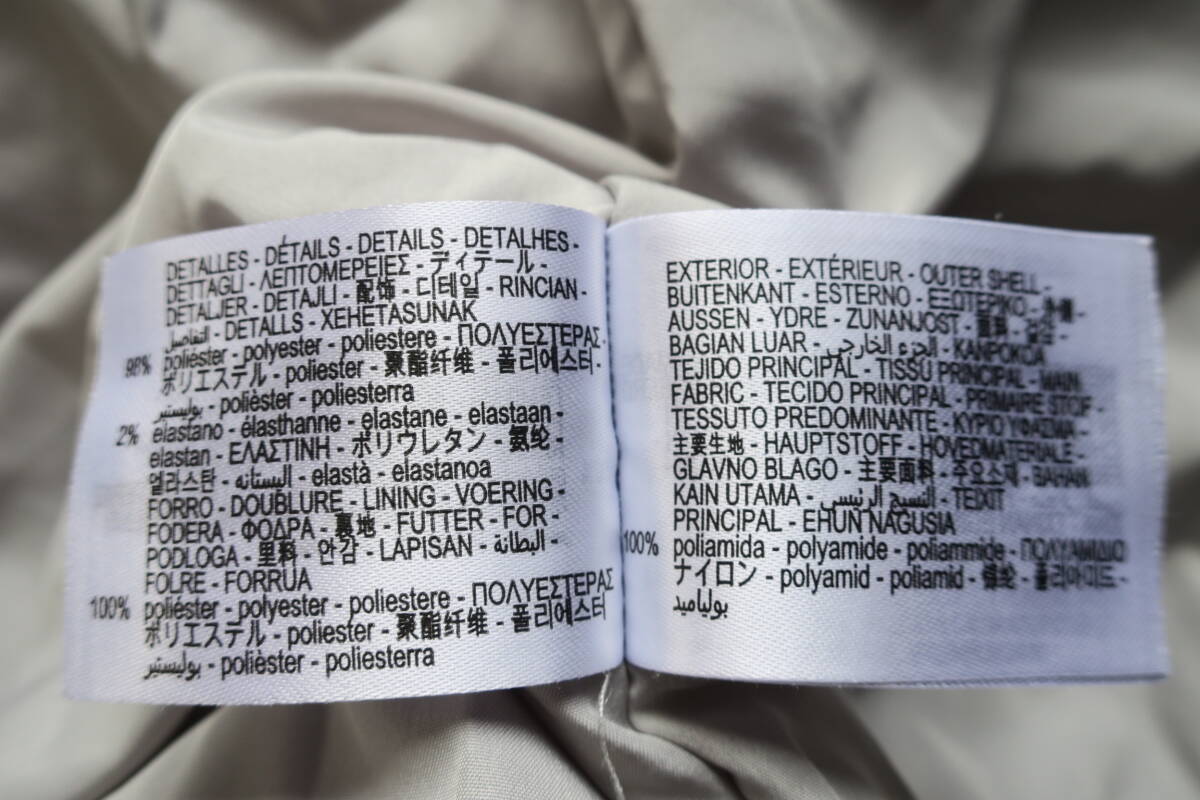 DETALLES - DÉTAILS - DETAILS - DETALHES -
DETTAGLI - ΛΕΠΤΟΜΕΡΕΙΕΣ - ディテール -
DETALJER - DETAJLI - 配饰 - 디테일 - RINCIAN -
التفاصيل - DETALLS - XEHETASUNAK
98% poliéster - polyester - poliestere - ΠΟΛΥΕΣΤΕΡΑΣ -
ポリエステル - poliester - 聚酯纤维 - 폴리에스터 -
بوليستير - polièster - poliesterra
2% elastano - élasthanne - elastane - elastaan -
elastan - ΕΛΑΣΤΙΝΗ - ポリウレタン - 氨纶 -
엘라스탄 - اليستانه - elastà - elastanoa
FORRO - DOUBLURE - LINING - VOERING -
FODERA - ΦΟΔΡΑ - 裏地 - FUTTER - FOR -
PODLOGA - 里料 - 안감 - LAPISAN - البطانة -
FOLRE - FORRUA
100% poliéster - polyester - poliestere - ΠΟΛΥΕΣΤΕΡΑΣ
ポリエステル - poliester - 聚酯纤维 - 폴리에스터
بوليستير - polièster - poliesterra
EXTERIOR - EXTÉRIEUR - OUTER SHELL -
BUITENKANT - ESTERNO - ΕΞΩΤΕΡΙΚΟ -
AUSSEN - YDRE - ZUNANJOST - 面料 - 겉감 -
BAGIAN LUAR - الجزء الخارجي - KANPOKOA
TEJIDO PRINCIPAL - TISSU PRINCIPAL - MAIN
FABRIC - TECIDO PRINCIPAL - PRIMAIRE STOF -
TESSUTO PREDOMINANTE - ΚΥΡΙΟ ΥΦΑΣΜΑ -
主要生地 - HAUPTSTOFF - HOVEDMATERIALE -
GLAVNO BLAGO - 主要面料 - 주요소재 - BAHAN
KAIN UTAMA - النسيج الرئيسي - TEIXIT
PRINCIPAL - EHUN NAGUSIA
100% poliamida - polyamide - poliammide - ΠΟΛΥΑΜΙΔΙΟ
ナイロン - polyamid - poliamid - 锦纶 - 폴리아미드 -
بولياميد